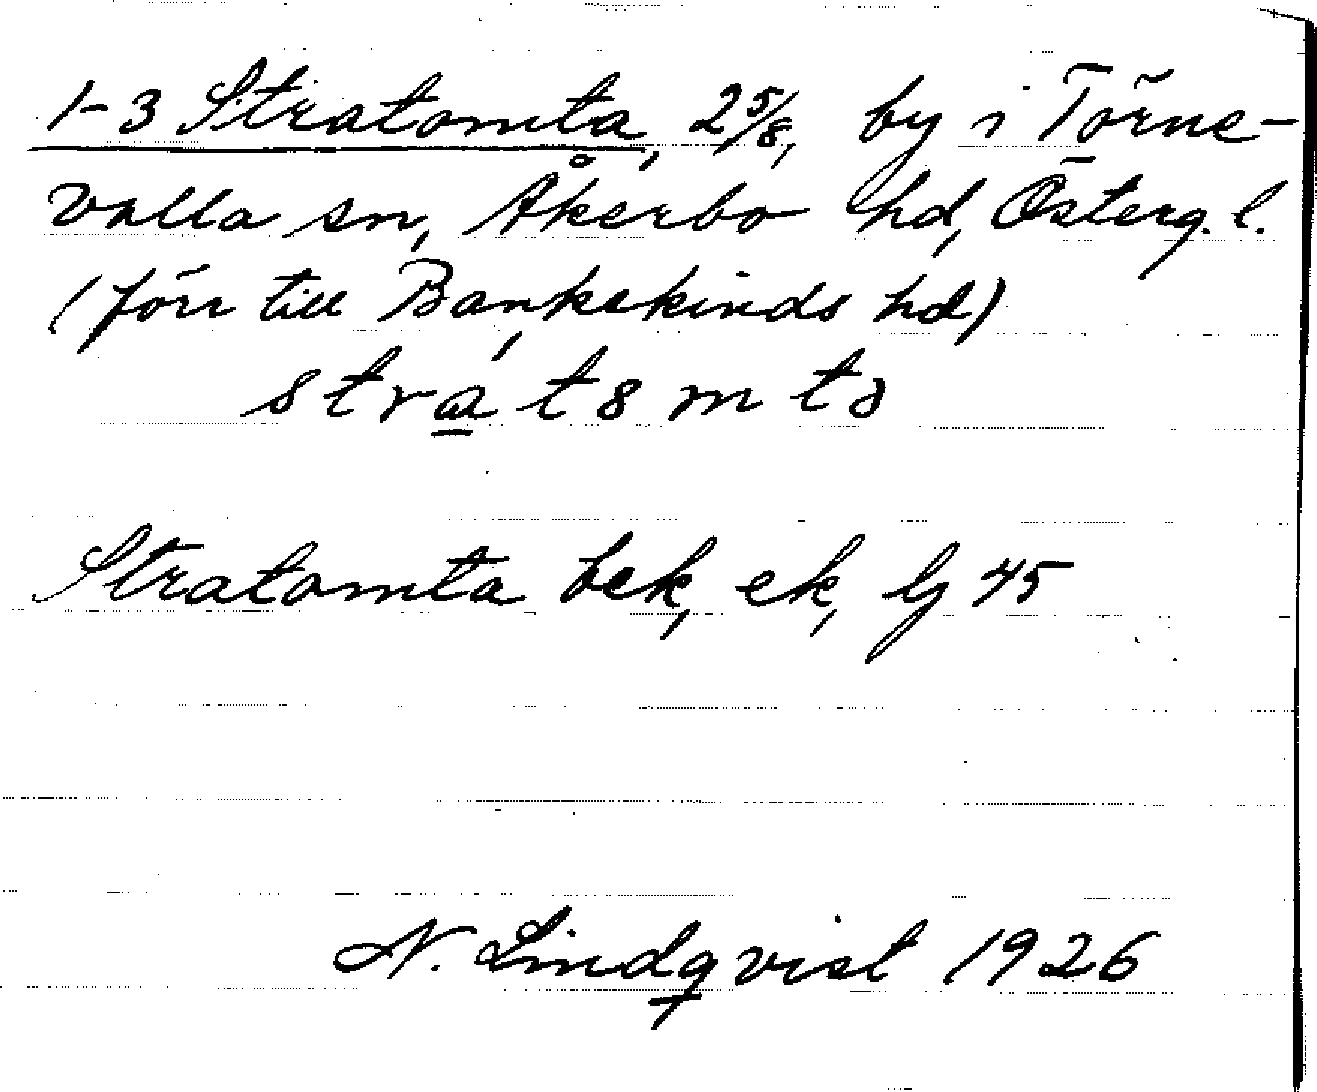 1-3 Stratomta, 2 5/8, by i Törne-
valla sn, Åkerbo hd, Österg. l.
(förr till Bankekinds hd)
Stratomta bek, ek, lj 45
N. Lindqvist 1926